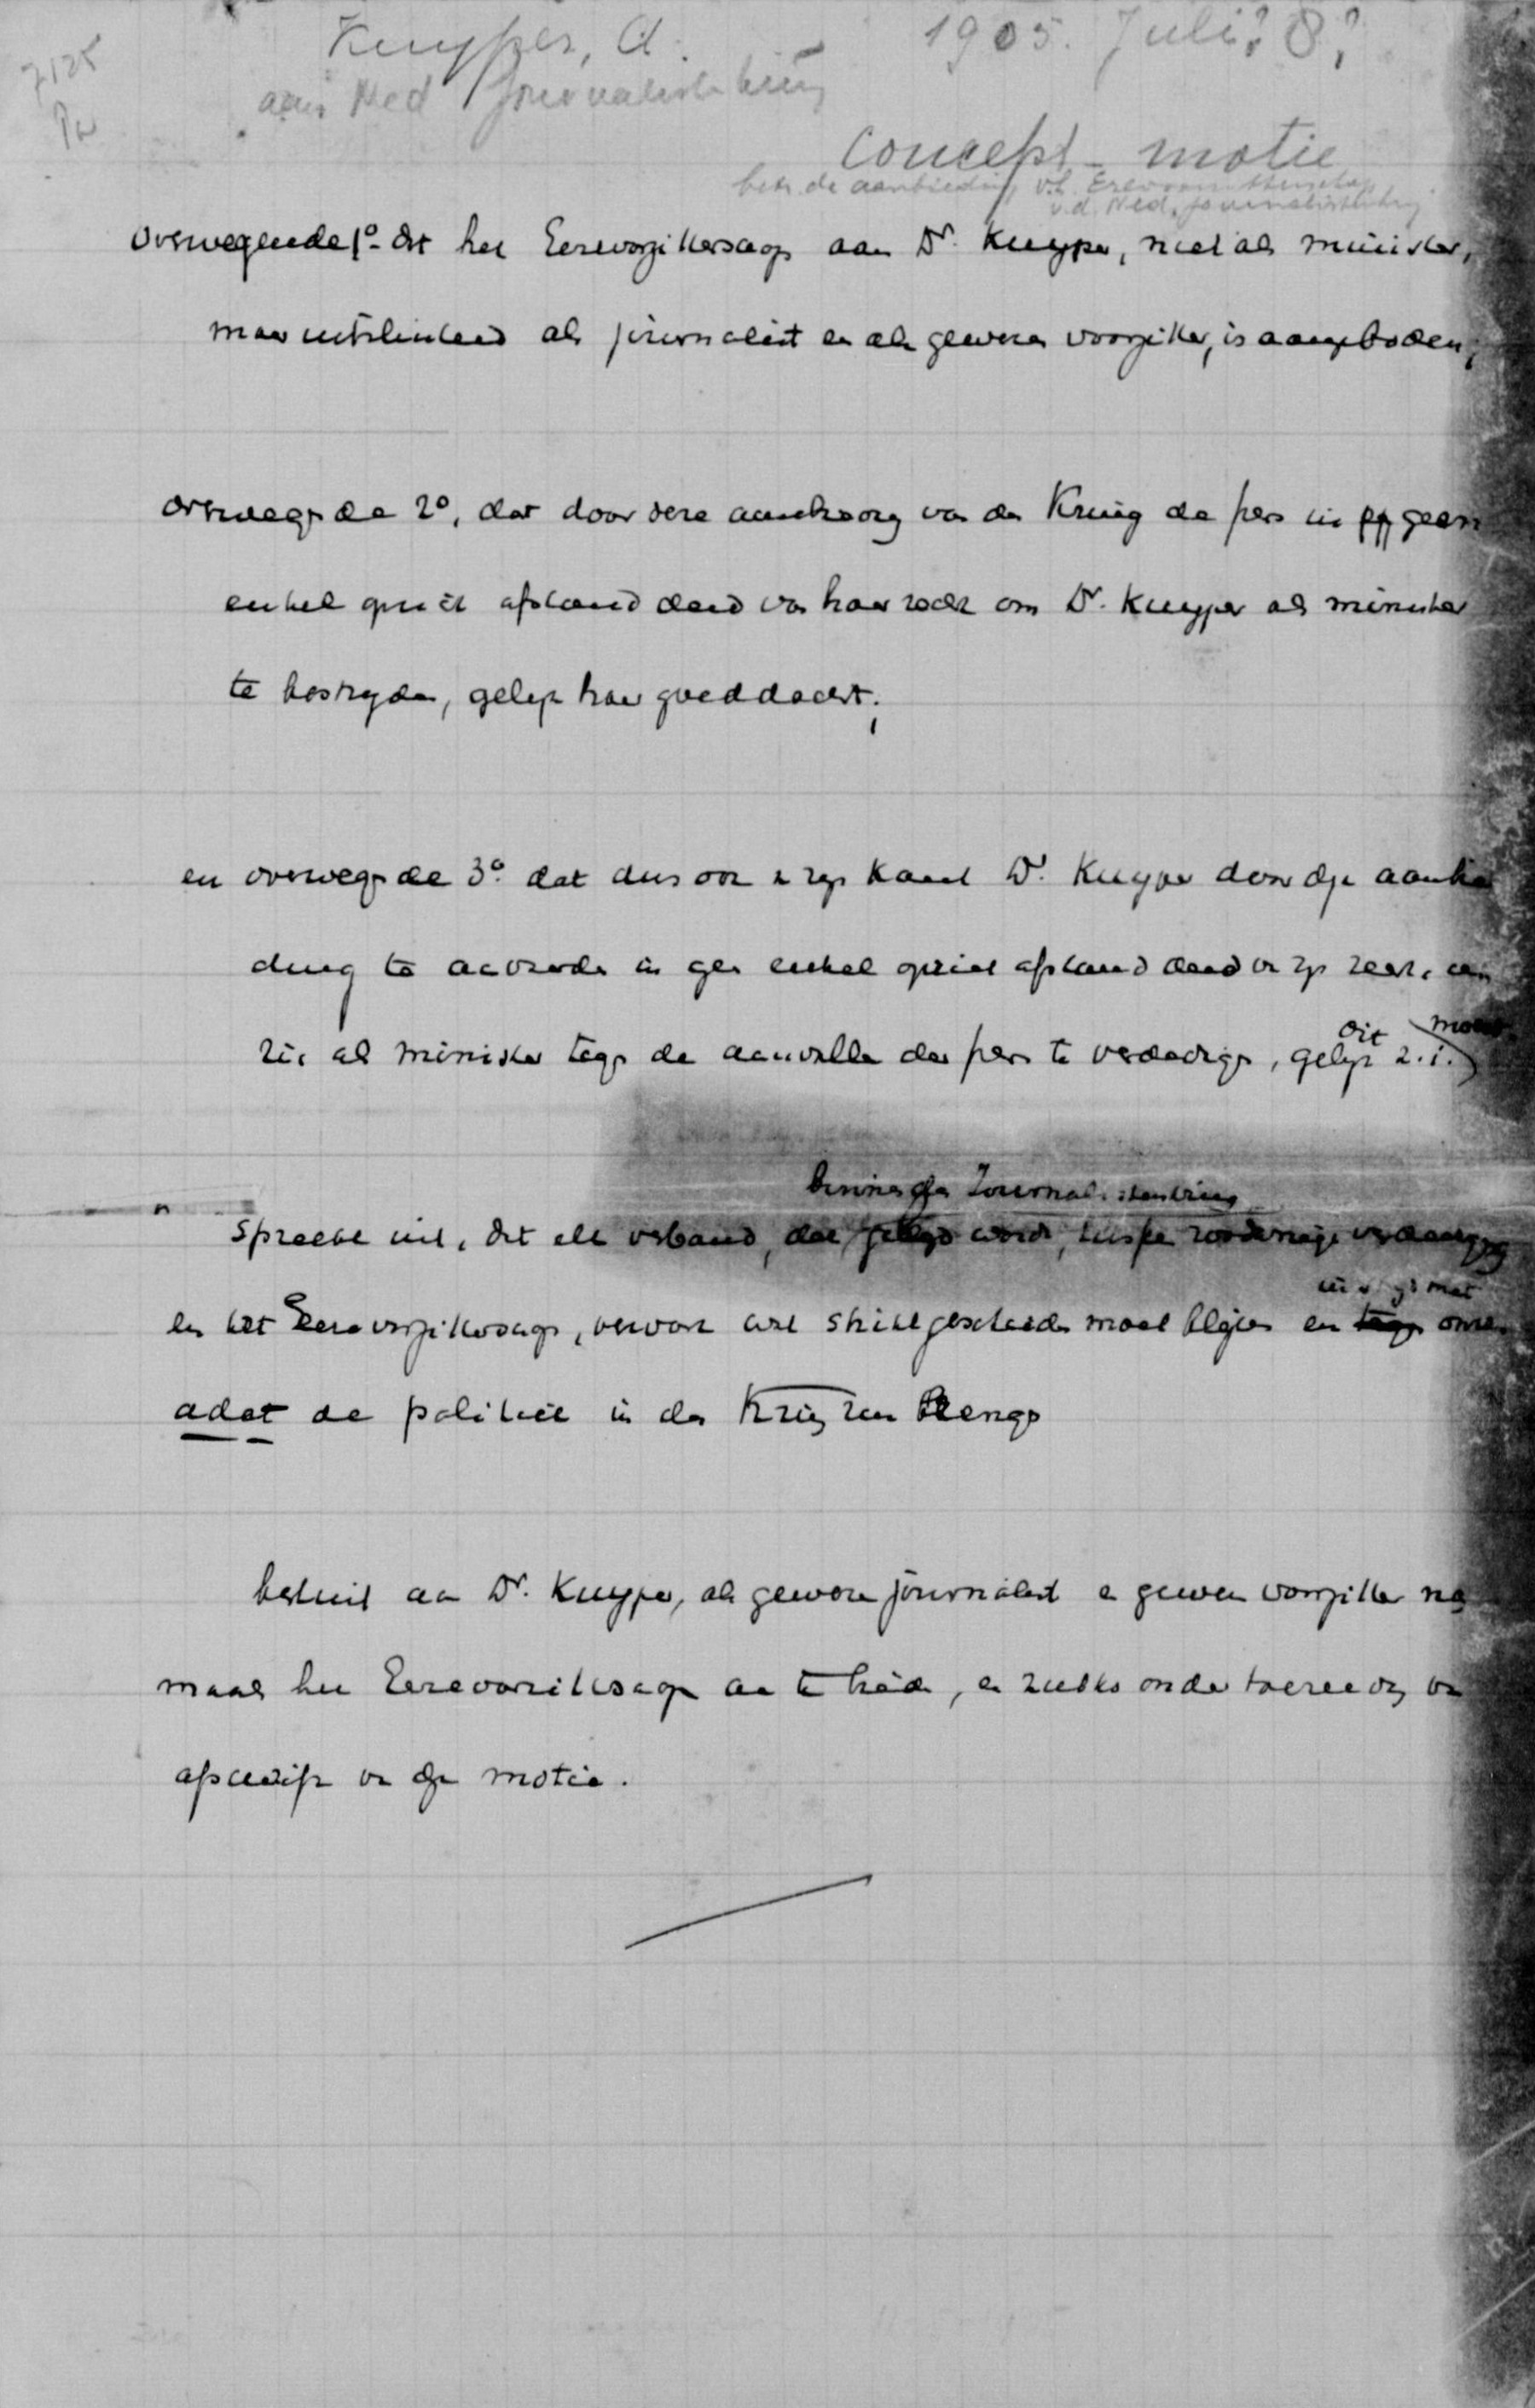 7125
Kuyper, A. 1905. Juli? 8?
aan Ned Journalistenkring
Concept-motie
betr. de aanbieding v.h. Erevoorzitterschap
v.d. Ned. Journalistenkring
Overwegende 1o dat het Eerevoorzitterschap aan Dr. Kuyper, niet als minister,
maar uitsluitend als journalist en als gewezen voorzitter, is aangeboden;
overwegende 2o, dat door deze van den Kring de pers in geen
enkel opzicht afstand deed van haar recht om Dr. Kuyper als minister
te bestrijden, gelijk haar goeddacht;
en overwegende 3o. dat dus ook zijn kant Dr. Kuyper door deze aanbie
ding te aanvaarden in geen enkel opzicht afstand deed van zijn recht, om
zich als minister tegen de aanvallen der pers te verdedigen, gelijk dit z.i. moest
binnen den Journalistenkring
spreekt uit, dat elk verband, dat gelegd wordt, tusschen
en het Eerevoorzitterschap, strikt gescheiden moet blijven en tegen onze
adat de politiek in den Kring zou brengen
besluit aan Dr. Kuyper, als gewezen journalist en gewezen voorzitter nog
maals het Eerevoorzitterschap aan te bieden, en zulks onder toezending van
afschrift van deze motie.